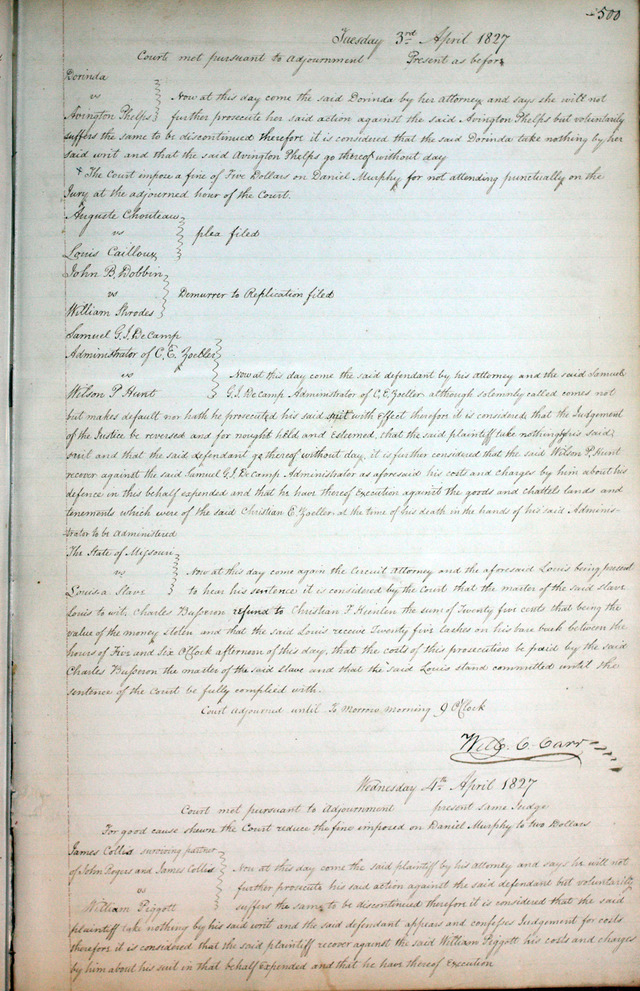 500
Tuesday 3rd April 1827
Court met pursuant to adjournment Present as before
Dorinda
vs
Avington Phelps
Now at this day come the said Dorinda by her attorney and says she will not
further prosecute her said action against the said Avington Phelps but voluntarily
suffers the same to be discontinued therefore it is considered that the said Dorinda take nothing by her
said writ and that the said Avington Phelps go thereof without day
The Court impose a fine of Five Dollars on Daniel Murphy for not attending punctually on the
Jury at the adjourned hour of the Court.
Auguste Chouteau
vs plea filed
Louis Cailloux
John B. Dobbin
vs Demurrer to Replication filed
William Shrodes
Samuel G. I. DeCamp
Administrator of C. E. Zoeller
vs
Wilson P Hunt
Now at this day come the said defendant by his attorney and the said Samuel
G. I. DeCamp Administrator of C. E. Zoeller although solemnly called comes not
but makes default nor hath he prosecuted his said suit with effect therefore it is considered that the Judgement
of the Justice be reversed and for nought held and esteemed, that the said plaintiff take nothing by his said
suit and that the said defendant go thereof without day, it is further considered that the said Wilson P. Hunt
recover against the said Samuel G. I. DeCamp Administrator as aforesaid his costs and charges by him about his
defence in this behalf expended and that he have thereof Execution against the goods and chattels lands and
tenements which were of the said Christian E. Zoeller at the time of his death in the hands of his said Adminis-
trator to be administered
The State of Missouri
vs
Louis a Slave
Now at this day come again the Circuit Attorney and the aforesaid Louis being present
to hear his sentence it is considered by the Court that the master of the said slave
Louis to wit, Charles Busseron refund to Christian F. Heinlen the sum of Twenty five cents that being the
value of the money stolen and that the said Louis receive Twenty five lashes on his bare back between the
hours of Five and Six O'Clock afternoon of this day, that the costs of this prosecution be paid by the said
Charles Busseron the master of the said slave and that the said Louis stand committed until the
sentence of the Court be fully complied with.
Court adjourned until To Morrow morning 9 O'Clock
Will. C. Carr
Wednesday 4th April 1827
Court met pursuant to adjournment present same Judge
For good cause shewn the Court reduce the fine imposed on Daniel Murphy to two Dollars
James Collis surviving partner
of John Rogers and James Collis
vs
William Piggott
Now at this day come the said plaintiff by his attorney and says he will not
further prosecute his said action against the said defendant but voluntarily
suffers the same to be discontinued therefore it is considered that the said
plaintiff take nothing by his said writ and the said defendant appears and confesses Judgement for costs
therefore it is considered that the said plaintiff recover against the said William Piggott his costs and charges
by him about his suit in that behalf Expended and that he have thereof Execution